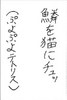 鱗を猫にチュッ
(ぷよぷよテトリス)